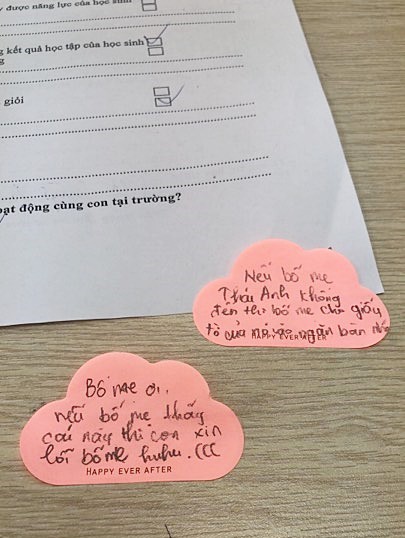 được năng lực của học sinh
kết quả học tập của học sinh
g
giỏi
oạt động cùng con tại trường?
Nếu bố mẹ
Thái Anh không
đến thì bố mẹ cho giấy
tờ của nó vào ngăn bàn nhé
HAPPY EVER AFTER
Bố mẹ ơi,
nếu bố mẹ thấy
cái này thì con xin
lỗi bố mẹ huhu.(((
HAPPY EVER AFTER